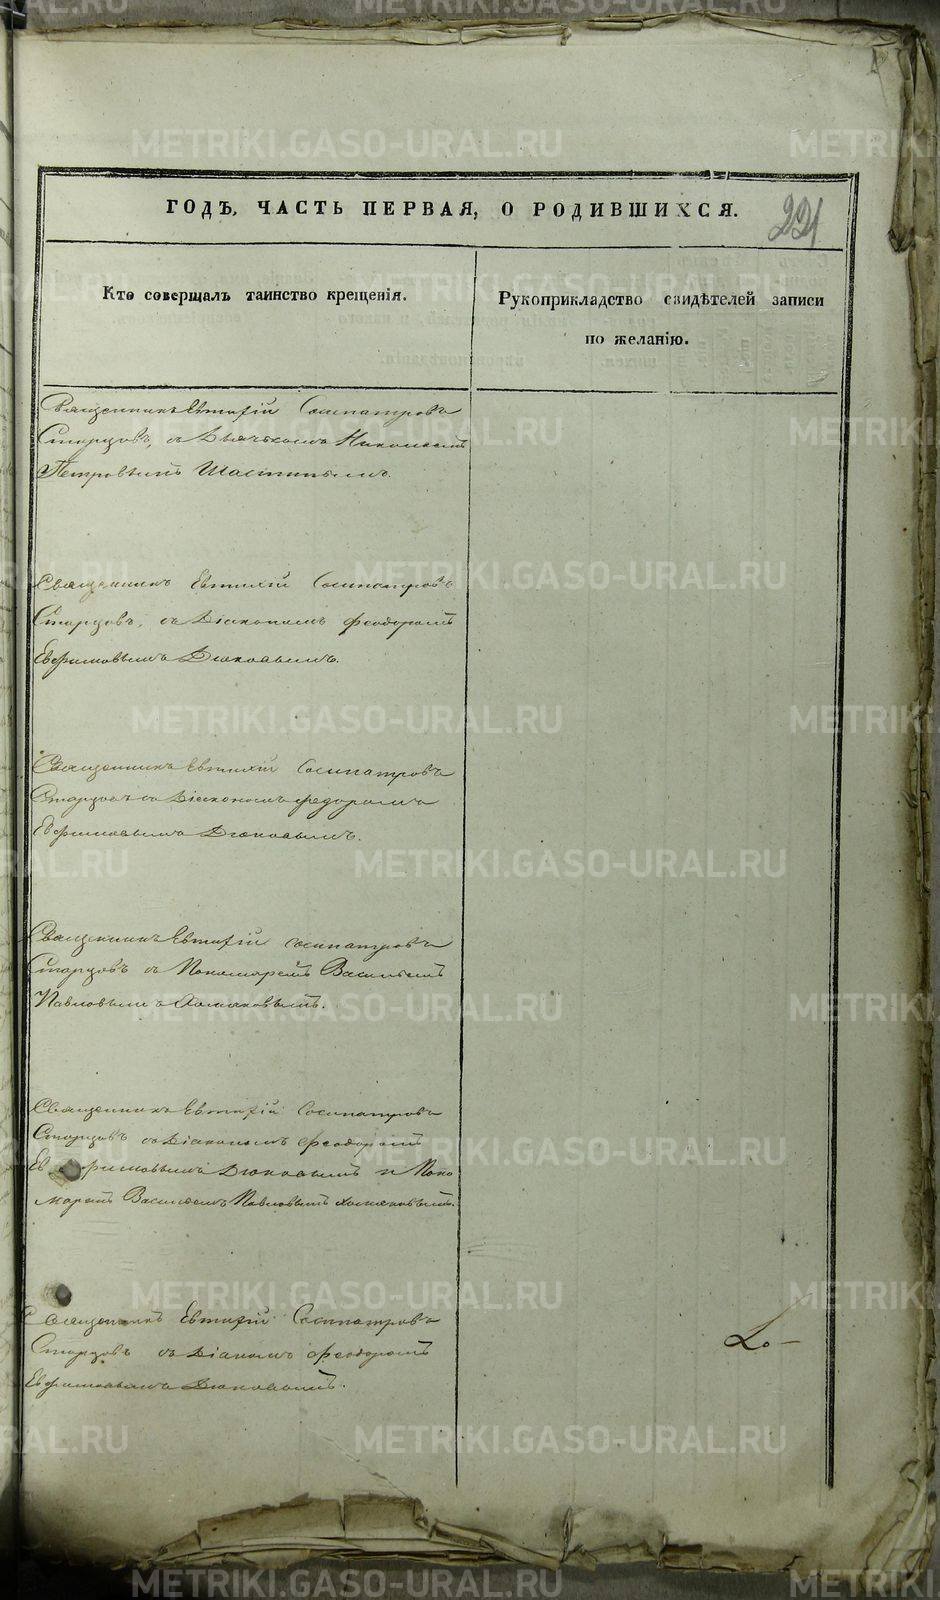 ГОДЪ, ЧАСТЬ ПЕРВАЯ, О РОДИВШИХСЯ.
221
Кто совершалъ таинство крещенія.
Рукоприкладство свидѣтелей записи
по желанію.
Священникъ Евтихій Сосипатровъ
Старцовъ, съ Дьячькомъ Николаемъ
Петровымъ Шастинымъ.
Священникъ Евтихій Сосипатровъ
Старцовъ, съ Діакономъ Феодоромъ
Евфимовымъ Дюковымъ.
Священникъ Евтихій Сосипатровъ
Старцовъ съ Діакономъ Федоромъ
Евфимовымъ Дюковымъ.
Священникъ Евтихій Сосипатровъ
Старцовъ съ Пономаремъ Васильемъ
Павловымъ Хомяковымъ.
Священникъ Евтихій Сосипатровъ
Старцовъ съ Діакономъ Феодоромъ
Евфимовымъ Дюковымъ и Поно
маремъ Васильемъ Павловымъ Хомяковымъ.
Священникъ Евтихій Сосипатровъ
Старцовъ съ Діакомъ Феодоромъ
Евфимовымъ Дюковымъ.
METRIKI.GASO-URAL.RU